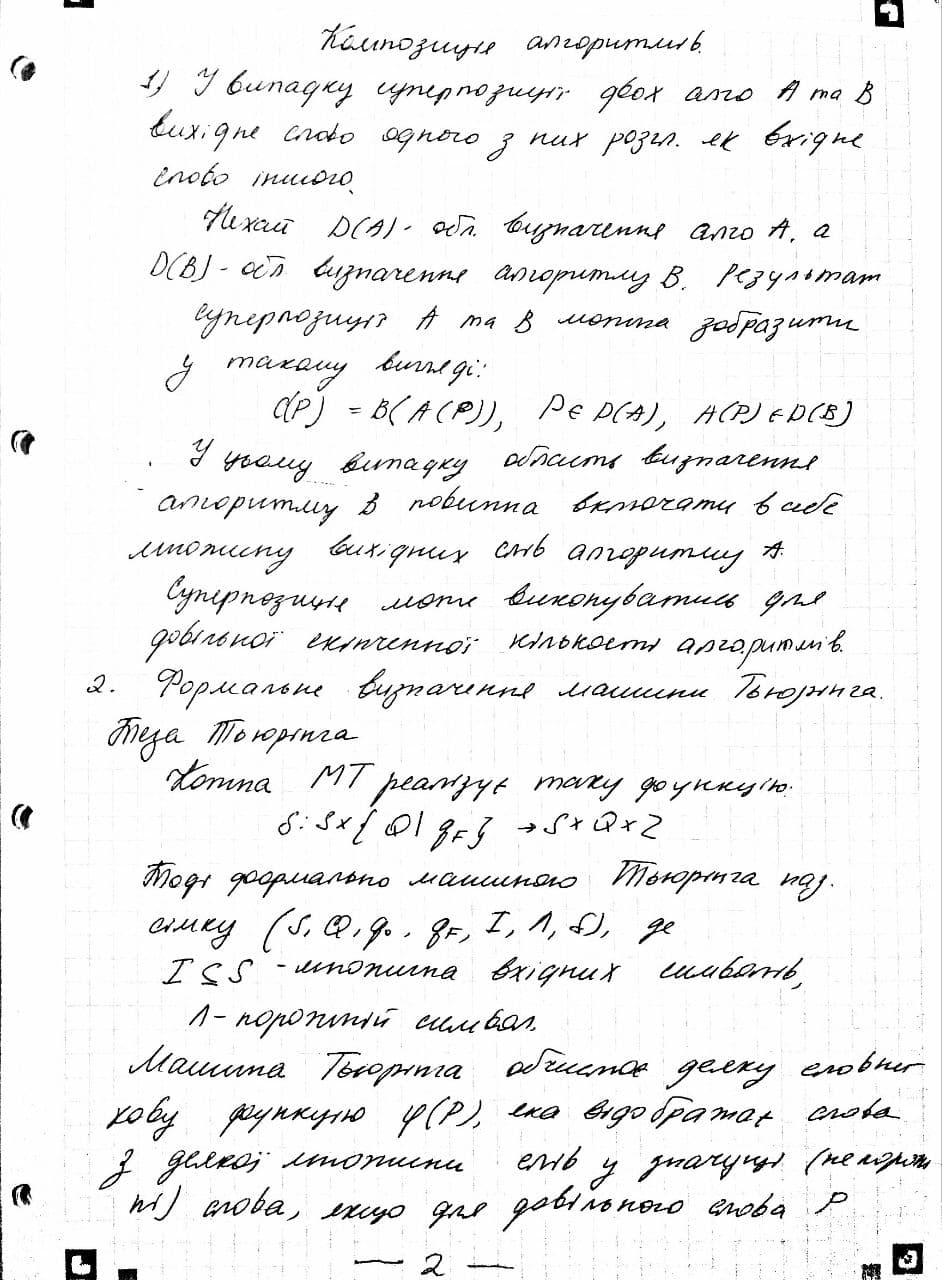 Композиція алгоритмів.
1) У випадку суперпозиції двох алго А та В
вихідне слово одного з них розгл. як вхідне
слово іншого.
Нехай D(A) - обл. визначення алго А, а
D(B) - обл визначення алгоритму В. Результат
суперпозиції А та В можна зобразити
у такому вигляді:
C(P) = B(A(P)), P ∈ D(A), A(P) ∈ D(B)
У цьому випадку область визначення
алгоритму В повинна включати в себе
множину вихідних слів алгоритму А.
Суперпозиція може виконуватись для
довільної скінченної кількості алгоритмів.
2. Формальне визначення машини Тьюрінга.
Теза Тьюрінга
Кожна МТ реалізує таку функцію:
δ: S x { Q \ q_F } → S x Q x Z
Тоді формально машиною Тьюрінга наз.
сімку (S, Q, q₀, q_F, I, Λ, δ), де
I ⊆ S - множина вхідних символів,
Λ - порожній символ.
Машина Тьюрінга обчислює деяку словни-
кову функцію φ(P), яка відображає слова
з деякої множини слів у значущі (непорож
ні) слова, якщо для довільного слова P
— 2 —